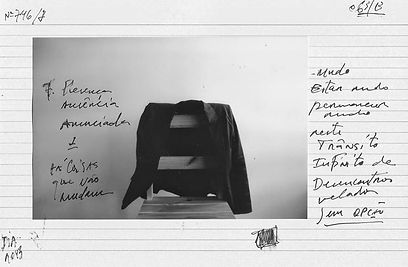 Nº 746/7
065/B
7. Presença
Ausência
Anunciada
1
As coisas
que não
mudam
-Mudo
Estar mudo
permanecer
mudo
neste
Trânsito
Infinito de
Desencontros
velados
Sem opção